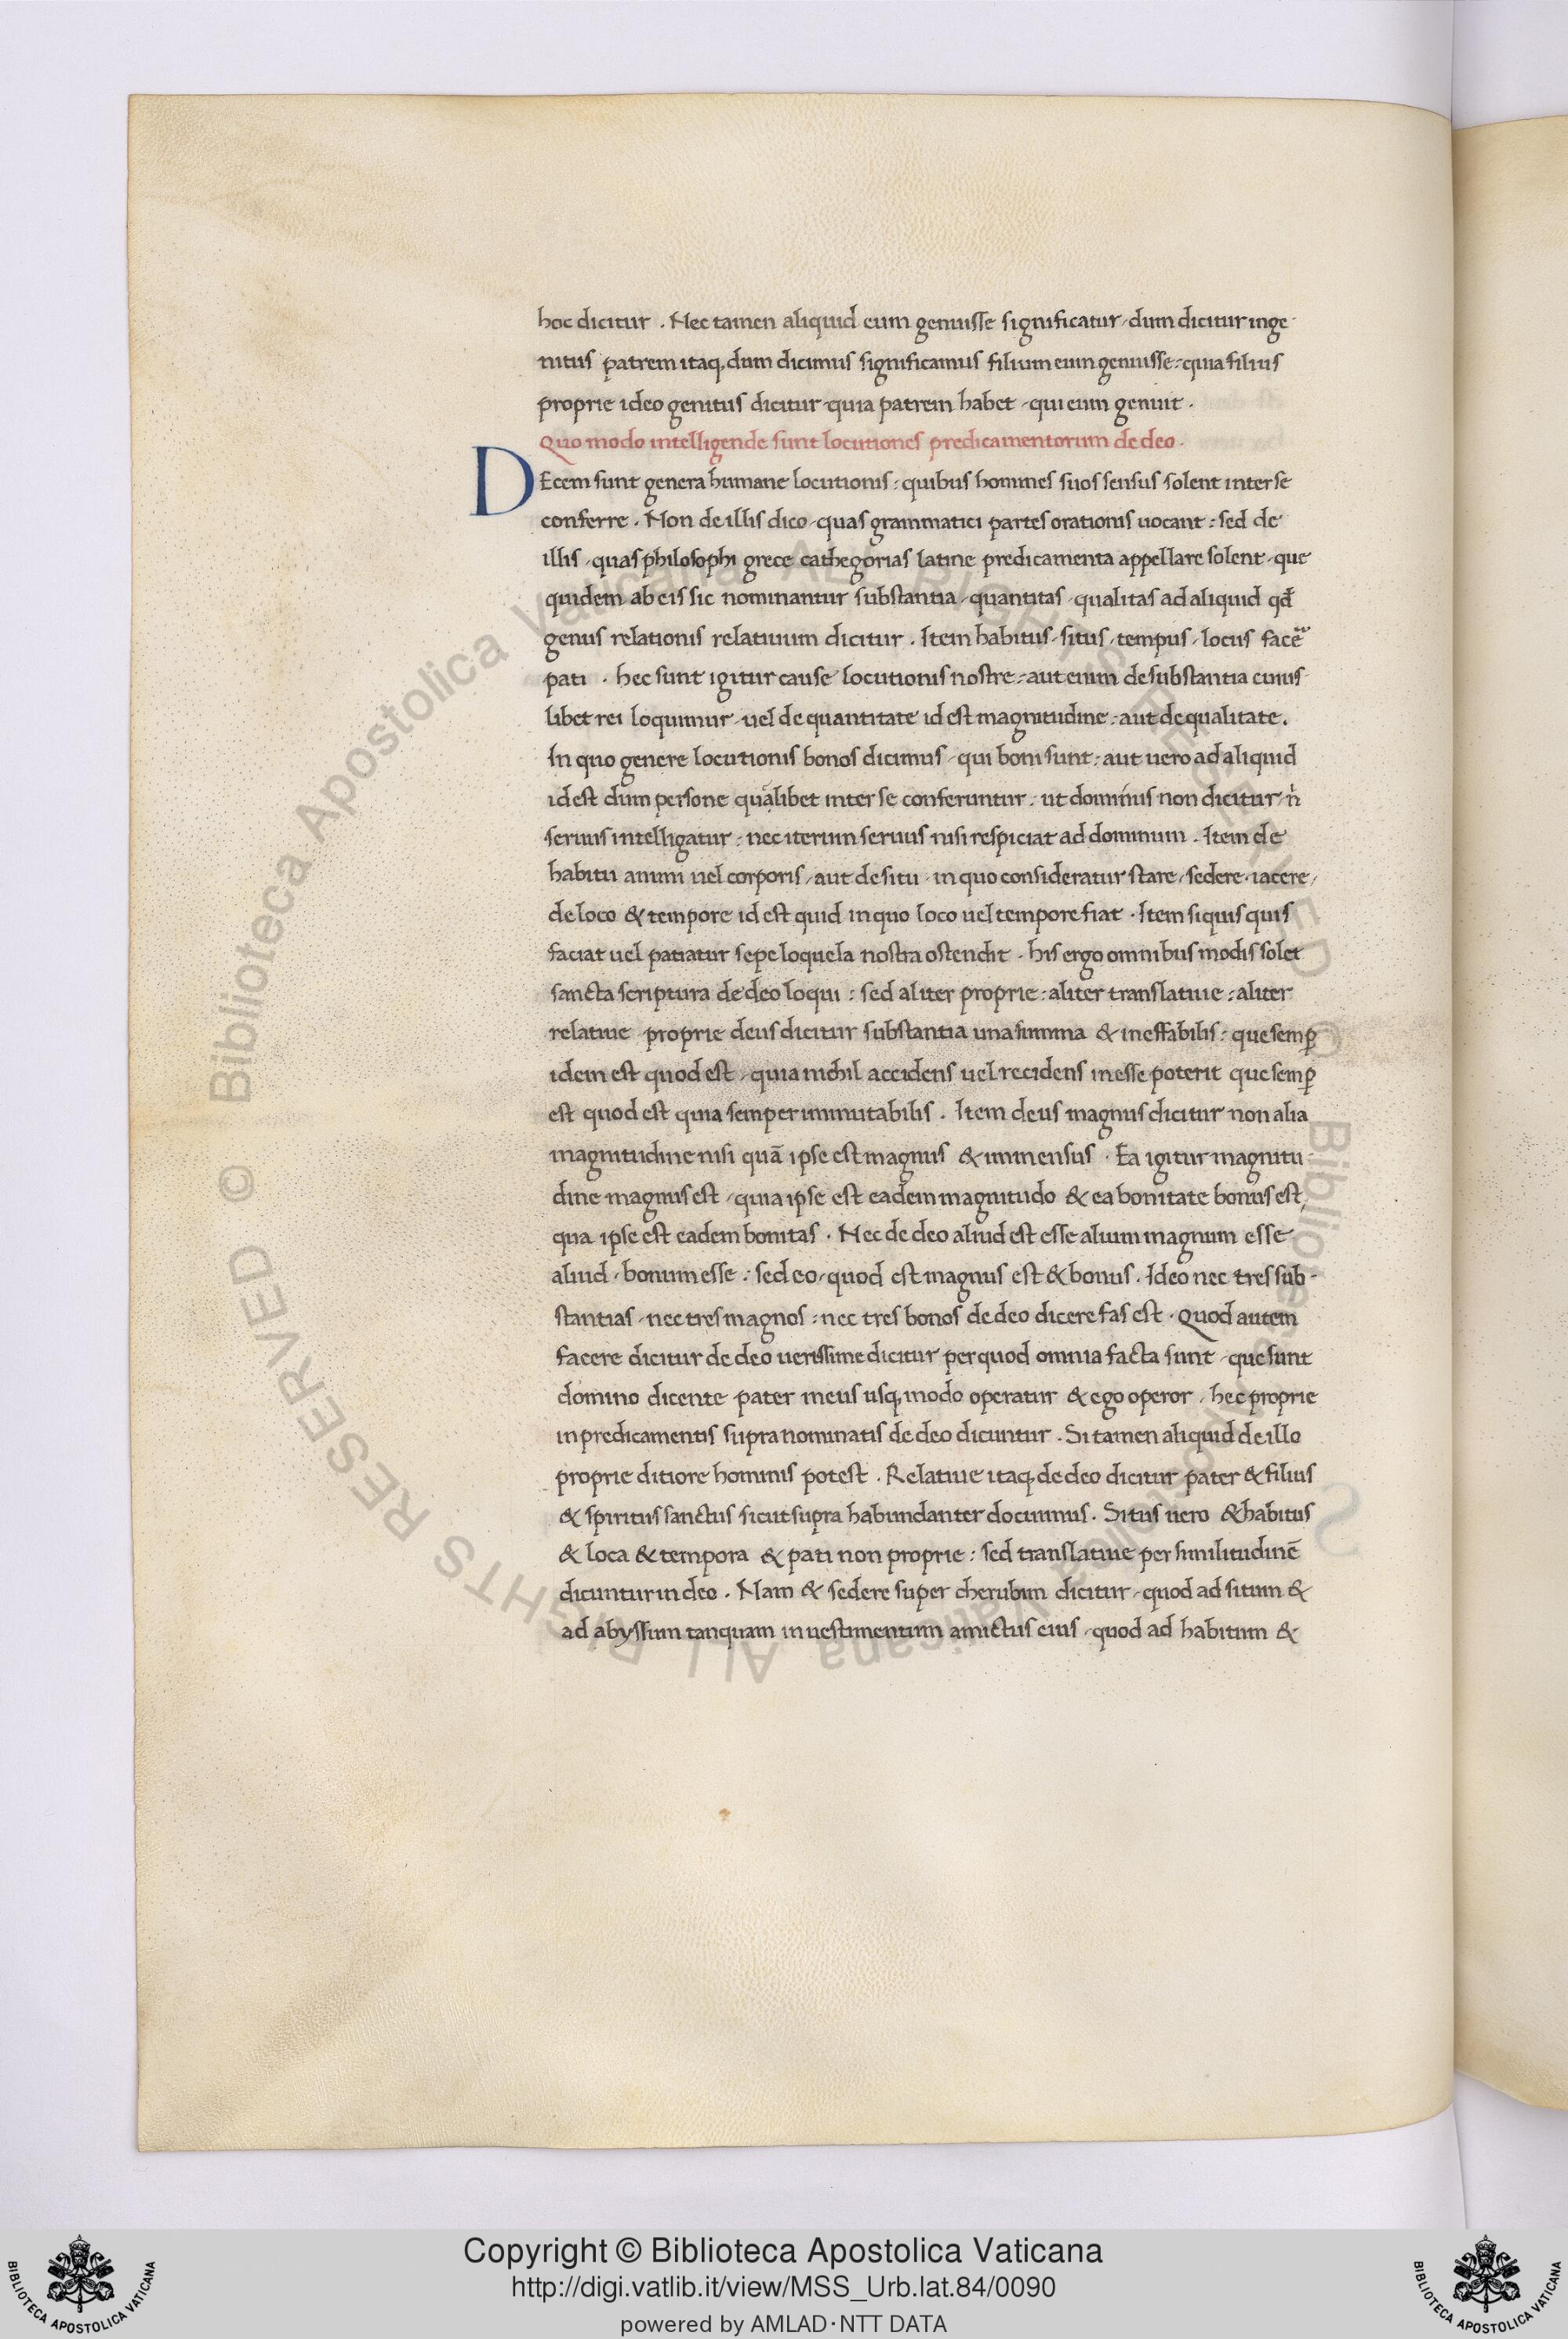 hoc dicitur . Nec tamen aliquid eum genuisse significatur, dum dicitur inge-
nitus patrem itaq, dum dicimus significamus filium eum genuisse: quia filius
proprie ideo genitus dicitur, quia patrem habet, qui eum genuit .
Quo modo intelligende sunt locutiones predicamentorum de deo .
DEcem sunt genera humane locutionis: quibus homines suos sensus solent inter se
conferre . Non de illis dico, quas grammatici partes orationis uocant: sed de
illis, quas philosophi grece cathegorias latine predicamenta appellare solent, que
quidem ab eis sic nominantur substantia, quantitas, qualitas ad aliquid qđ
genus relationis relatiuum dicitur . Item habitus, situs, tempus, locus facē
pati . hec sunt igitur cause locutionis nostre: aut enim de substantia cuius
libet rei loquimur, uel de quantitate id est magnitudine: aut de qualitate .
In quo genere locutionis bonos dicimus, qui boni sunt: aut uero ad aliquid
id est dum persone qualibet inter se conferuntur: ut dominus non dicitur, n̍
seruus intelligatur: nec iterum seruus nisi respiciat ad dominum . Item de
habitu animi uel corporis, aut de situ, in quo consideratur stare, sedere, iacere,
de loco & tempore id est quid in quo loco uel tempore fiat . Item siquis quis
faciat uel patiatur sepe loquela nostra ostendit . his ergo omnibus modis solet
sancta scriptura de deo loqui: sed aliter proprie: aliter translatiue: aliter
relatiue proprie deus dicitur substantia una summa & ineffabilis: que semp̄
idem est quod est, quia nichil accidens uel recidens inesse poterit que semp̄
est quod est quia semper immutabilis . Item deus magnus dicitur non alia
magnitudine nisi quā ipse est magnus & immensus . Ea igitur magnitu-
dine magnus est, quia ipse est eadem magnitudo & ea bonitate bonus est,
qua ipse est eadem bonitas . Nec de deo aliud est esse alium magnum esse
aliud, bonum esse: sed eo, quod est magnus est & bonus . Ideo nec tres sub-
stantias, nec tres magnos: nec tres bonos de deo dicere fas est . Quod autem
facere dicitur de deo uerissime dicitur per quod omnia facta sunt, que sunt
domino dicente pater meus usq, modo operatur & ego operor . hec proprie
in predicamentis supra nominatis de deo dicuntur . Si tamen aliquid de illo
proprie ditiore hominis potest . Relatiue itaq, de deo dicitur pater & filius
& spiritus sanctus sicut supra habundanter docuimus . Situs uero & habitus
& loca & tempora & pati non proprie: sed translatiue per similitudinē
dicuntur in deo . Nam & sedere super cherubim dicitur, quod ad situm &
ad abyssum tanquam in uestimentum amictus eius, quod ad habitum &
© Biblioteca Apostolica Vaticana ALL RIGHTS RESERVED
© Biblioteca Apostolica Vaticana ALL RIGHTS RESERVED
Copyright © Biblioteca Apostolica Vaticana
http://digi.vatlib.it/view/MSS_Urb.lat.84/0090
powered by AMLAD·NTT DATA
BIBLIOTECA APOSTOLICA VATICANA
BIBLIOTECA APOSTOLICA VATICANA